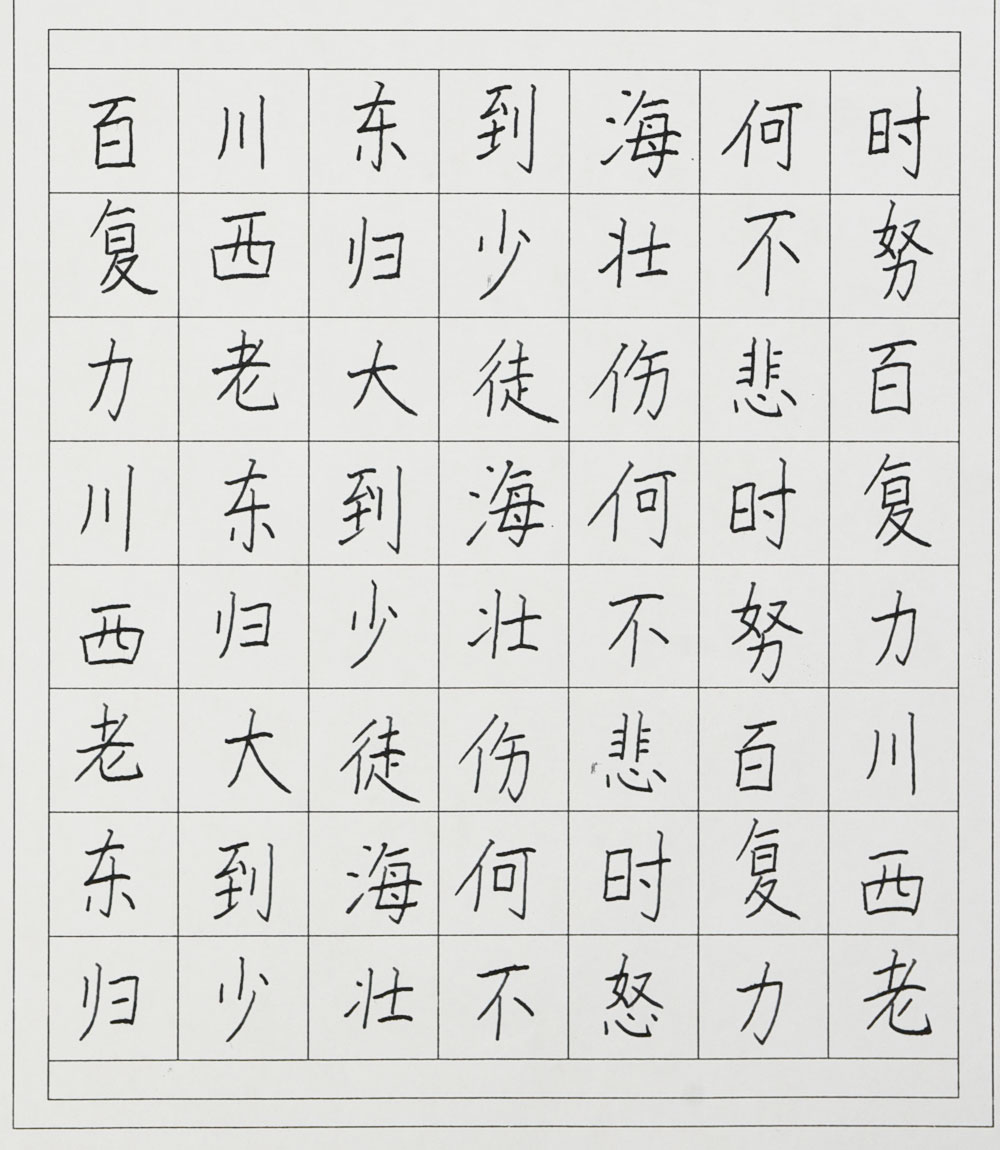 百川东到海何时
复西归少壮不努
力老大徒伤悲百
川东到海何时复
西归少壮不努力
老大徒伤悲百川
东到海何时复西
归少壮不怒力老